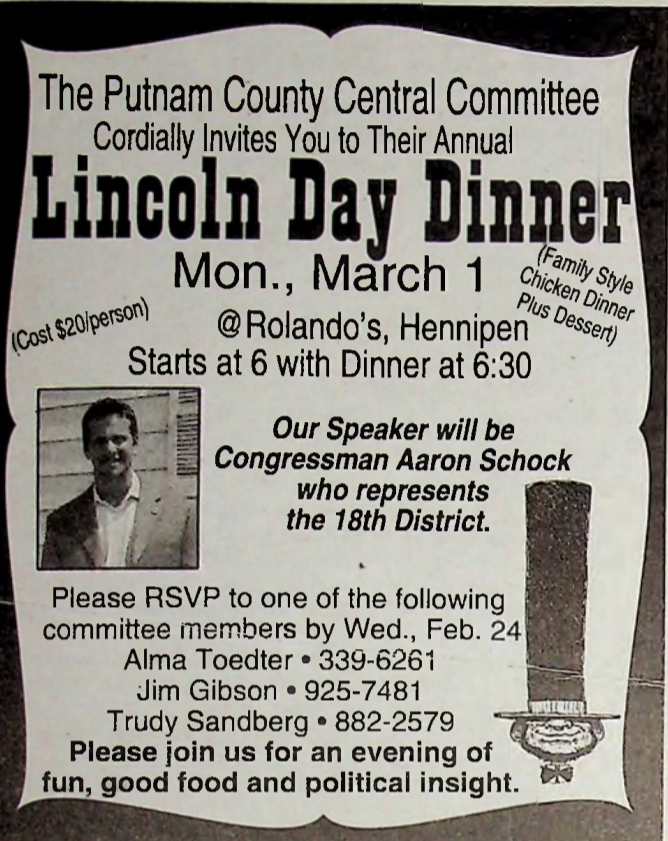 The Putnam County Central Committee
Cordially Invites You to Their Annual
Lincoln Day Dinner
Mon., March 1
(Family Style
Chicken Dinner
Plus Dessert)
(Cost $20/person)
@Rolando's, Hennipen
Starts at 6 with Dinner at 6:30
Our Speaker will be
Congressman Aaron Schock
who represents
the 18th District.
Please RSVP to one of the following
committee members by Wed., Feb. 24
Alma Toedter • 339-6261
Jim Gibson • 925-7481
Trudy Sandberg • 882-2579
Please join us for an evening of
fun, good food and political insight.